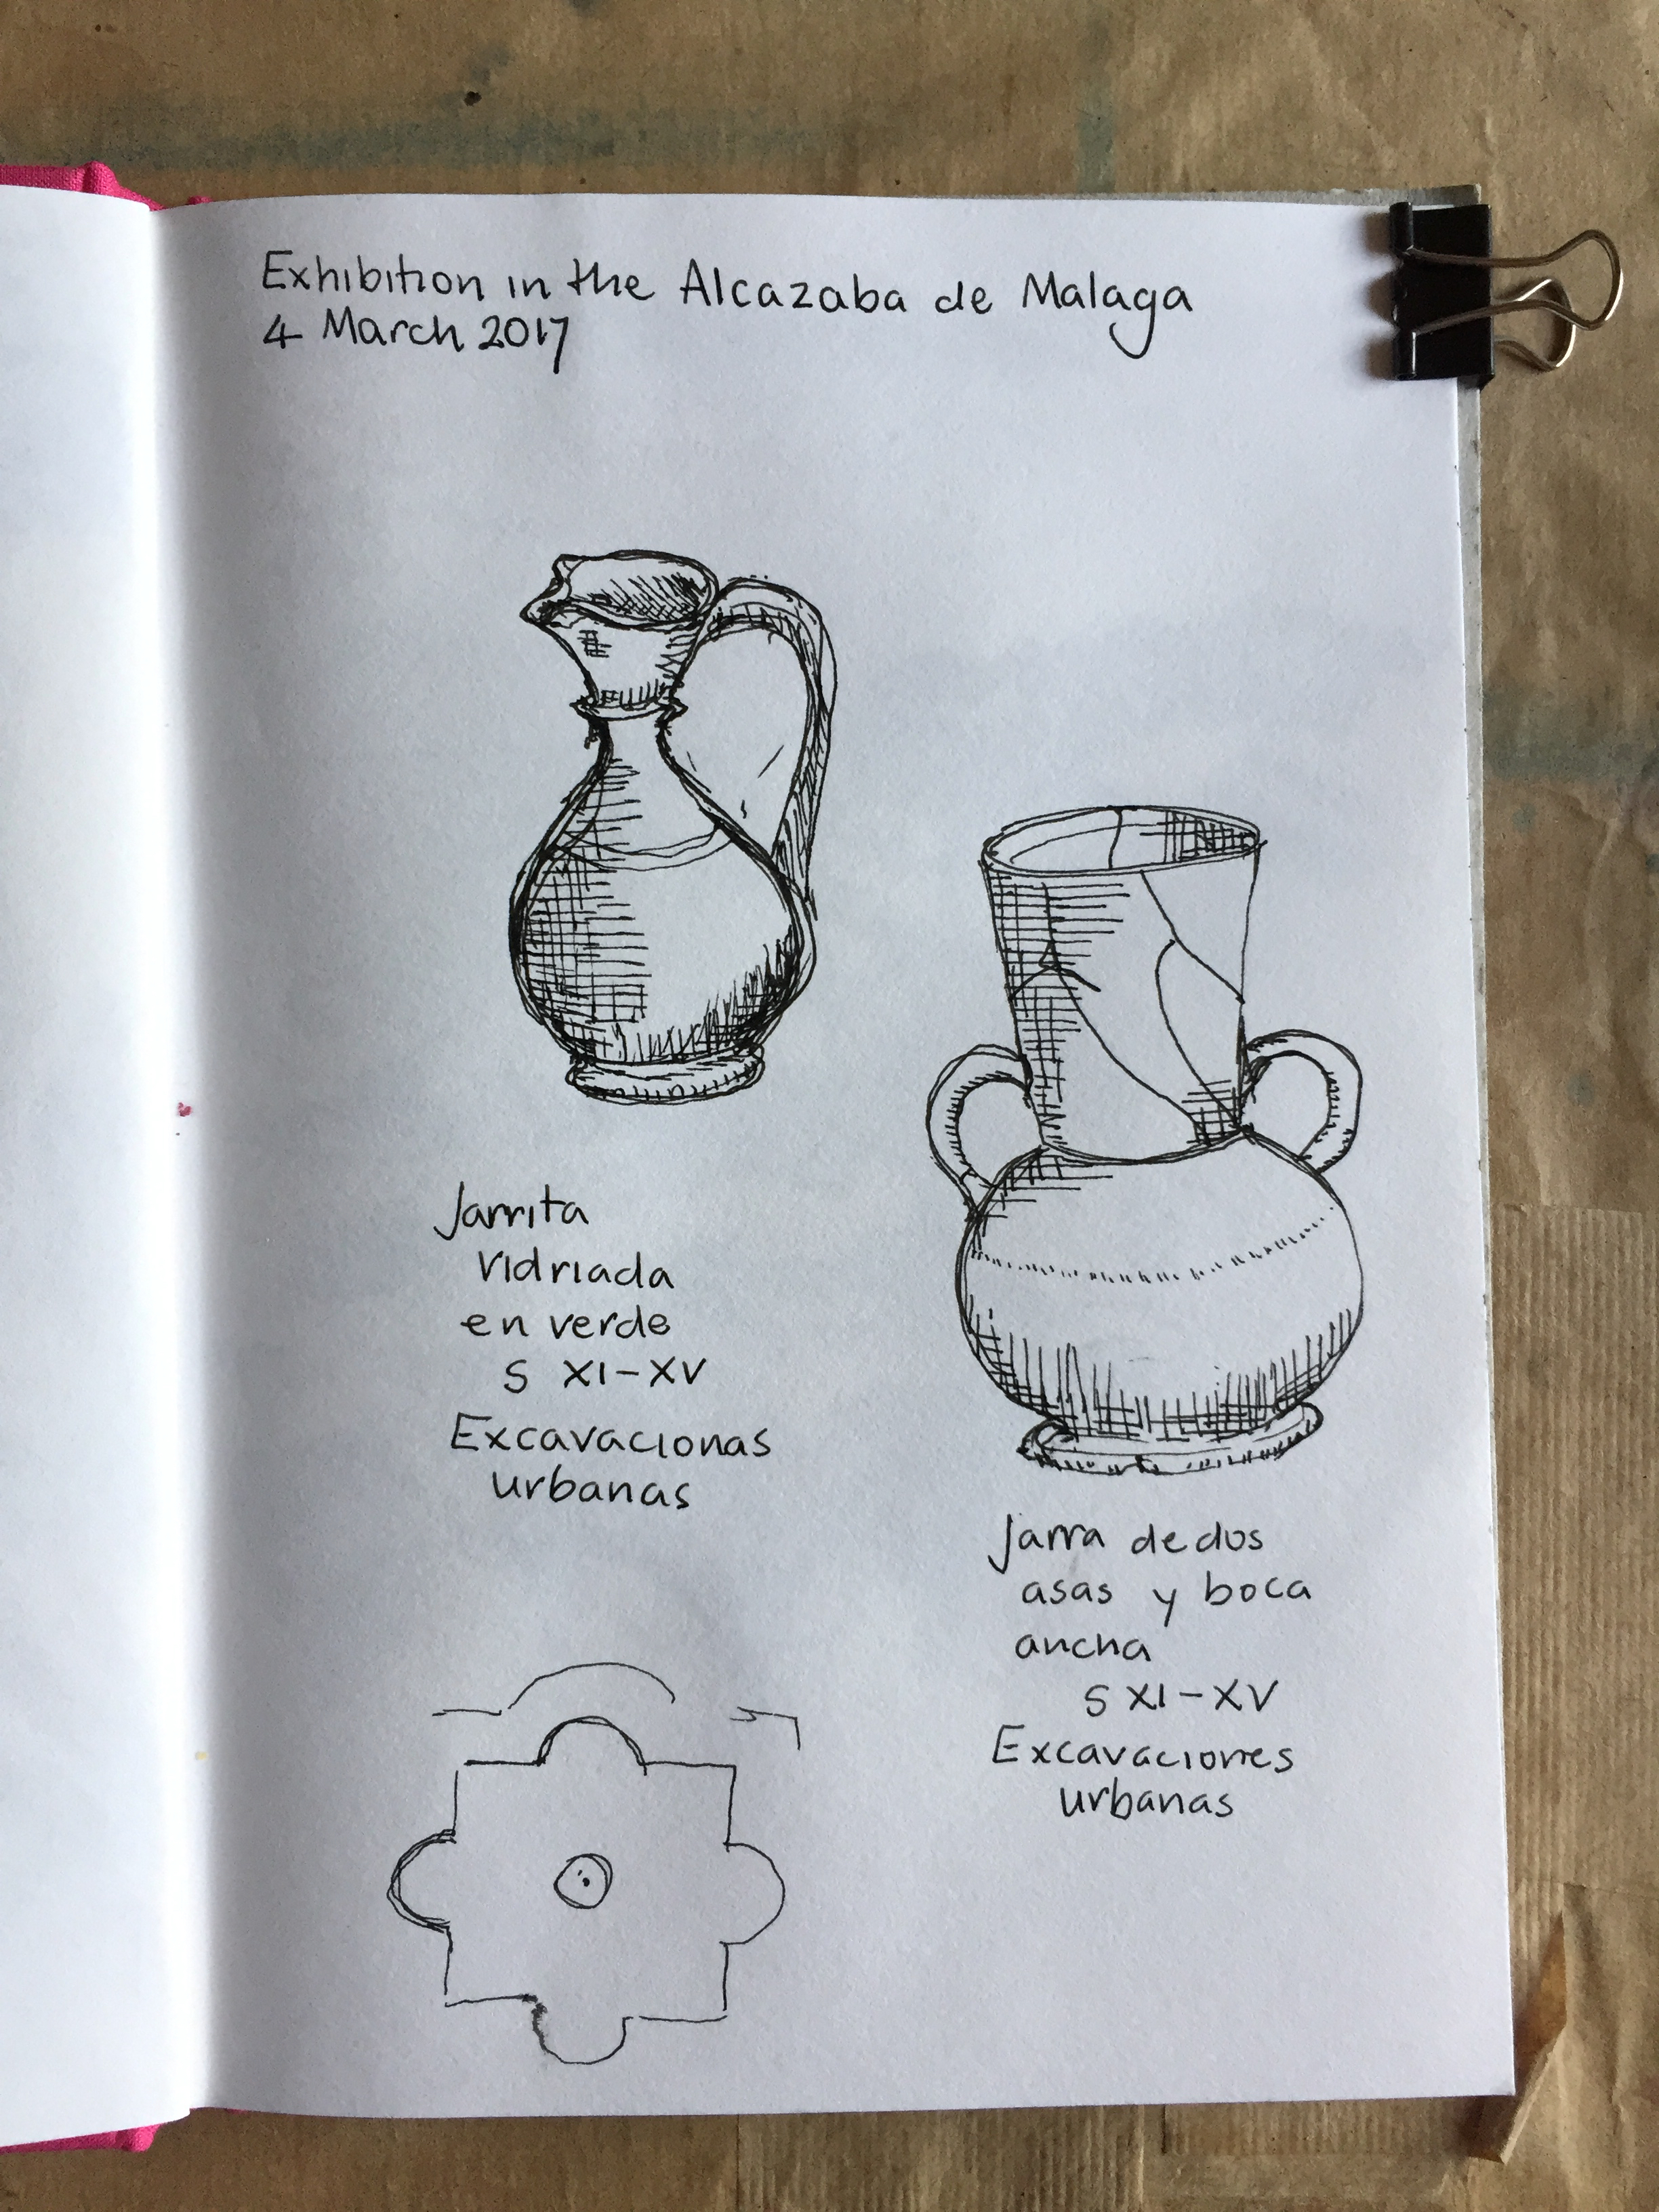 Exhibition in the Alcazaba de Malaga
4 March 2017
Jarrita
vidriada
en verde
S XI-XV
Excavacionas
urbanas
Jarra de dos
asas y boca
ancha
S XI-XV
Excavaciones
urbanas